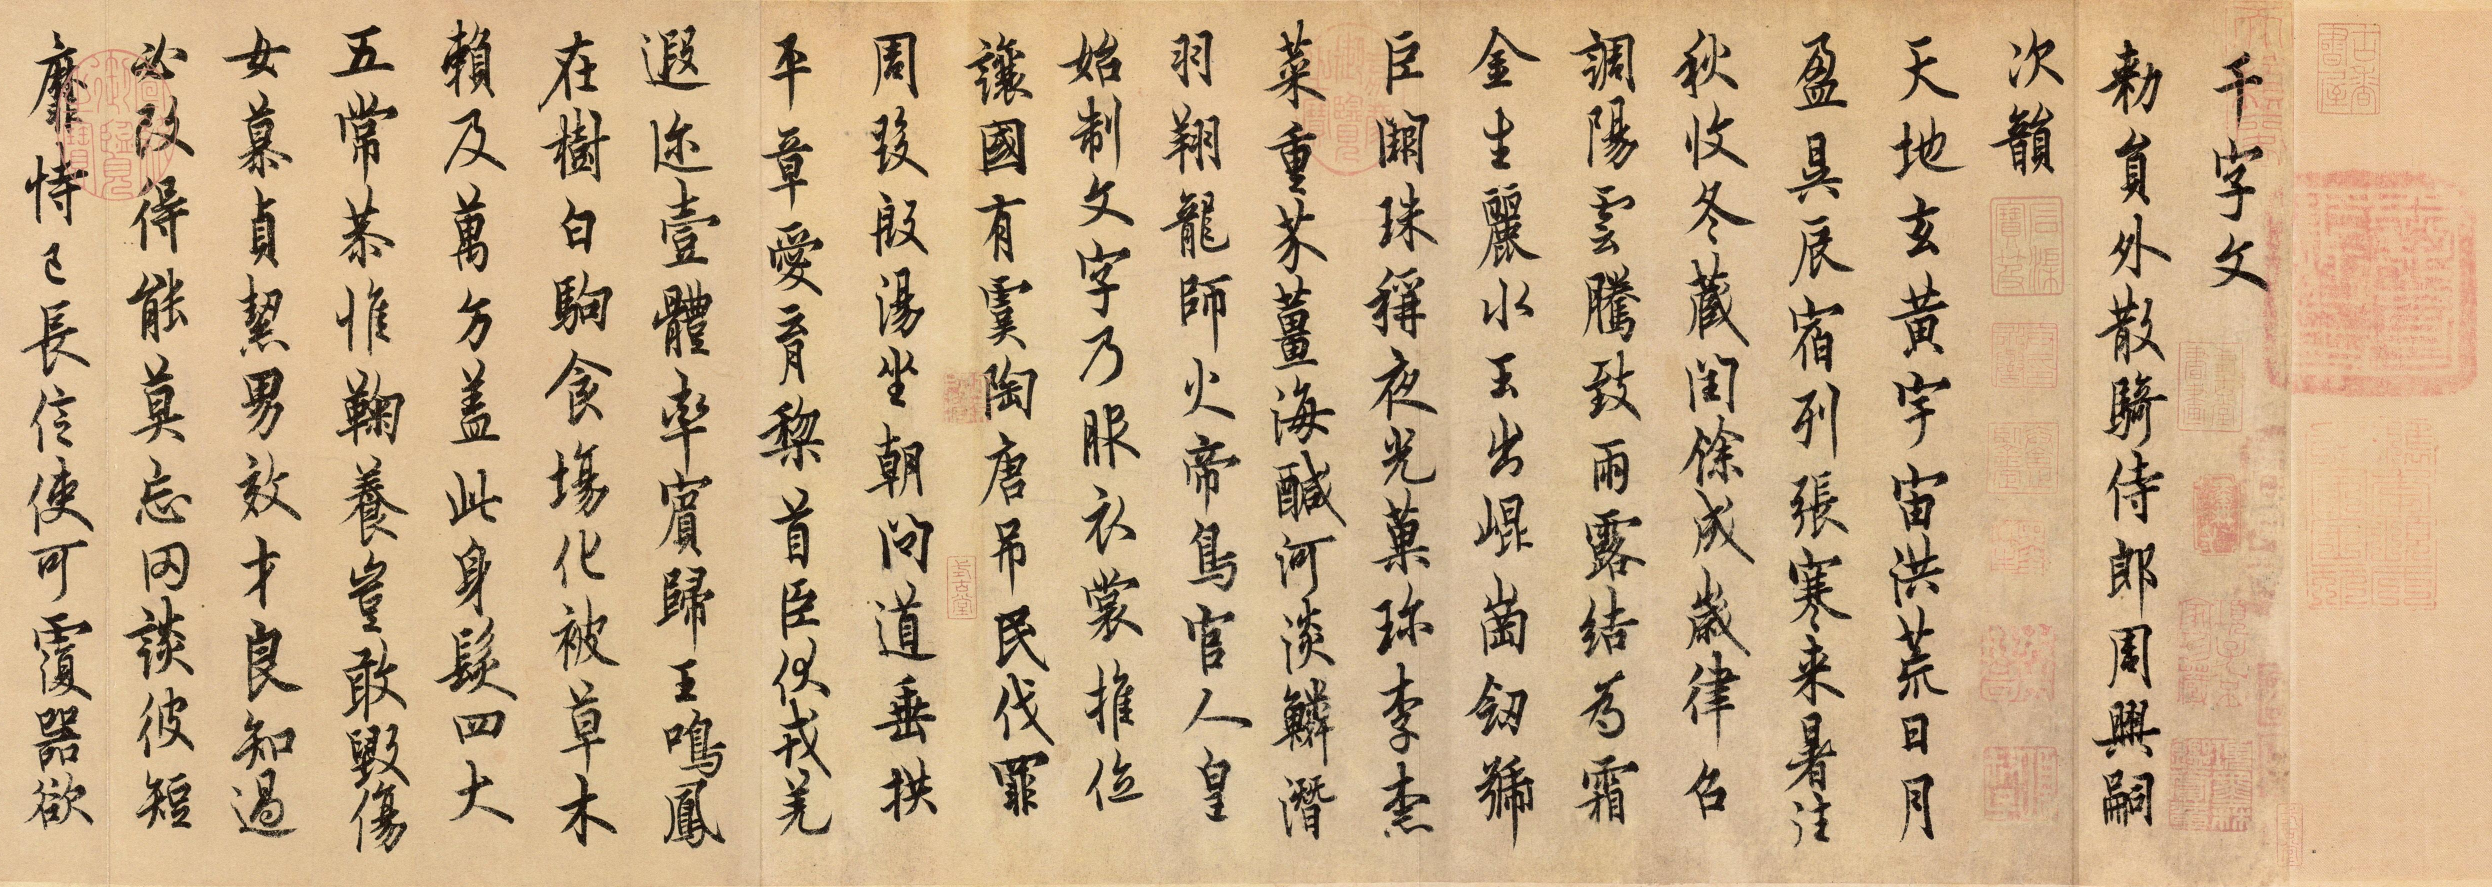 千字文
勅員外散騎侍郎周興嗣
次韻
天地玄黃宇宙洪荒日月
盈昃辰宿列張寒来暑往
秋收冬藏閏餘成歲律召
調陽雲騰致雨露結為霜
金生麗水玉出崐崗劒號
巨闕珠稱夜光菓珎李柰
菜重芥薑海醎河淡鱗潛
羽翔龍師火帝鳥官人皇
始制文字乃服衣裳推位
讓國有虞陶唐吊民伐罪
周發殷湯坐朝問道垂拱
平章愛育黎首臣伏戎羌
遐迩壹體率賓歸王鳴鳳
在樹白駒食場化被草木
賴及萬方蓋此身髮四大
五常恭惟鞠養豈敢毀傷
女慕貞絜男效才良知過
必改得能莫忘罔談彼短
靡恃己長信使可覆器欲